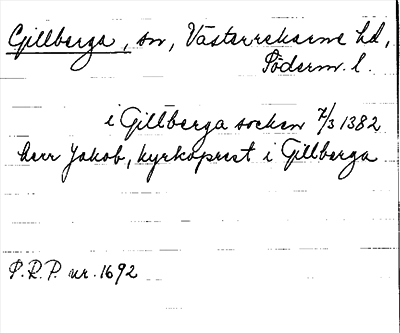 Gillberga, sn, Västerrekarne hd,
Söderm. l.
i Gillberga socken 7/3 1382
herr Jakob, kyrkoprest i Gillberga
P.R.P. nr. 1692